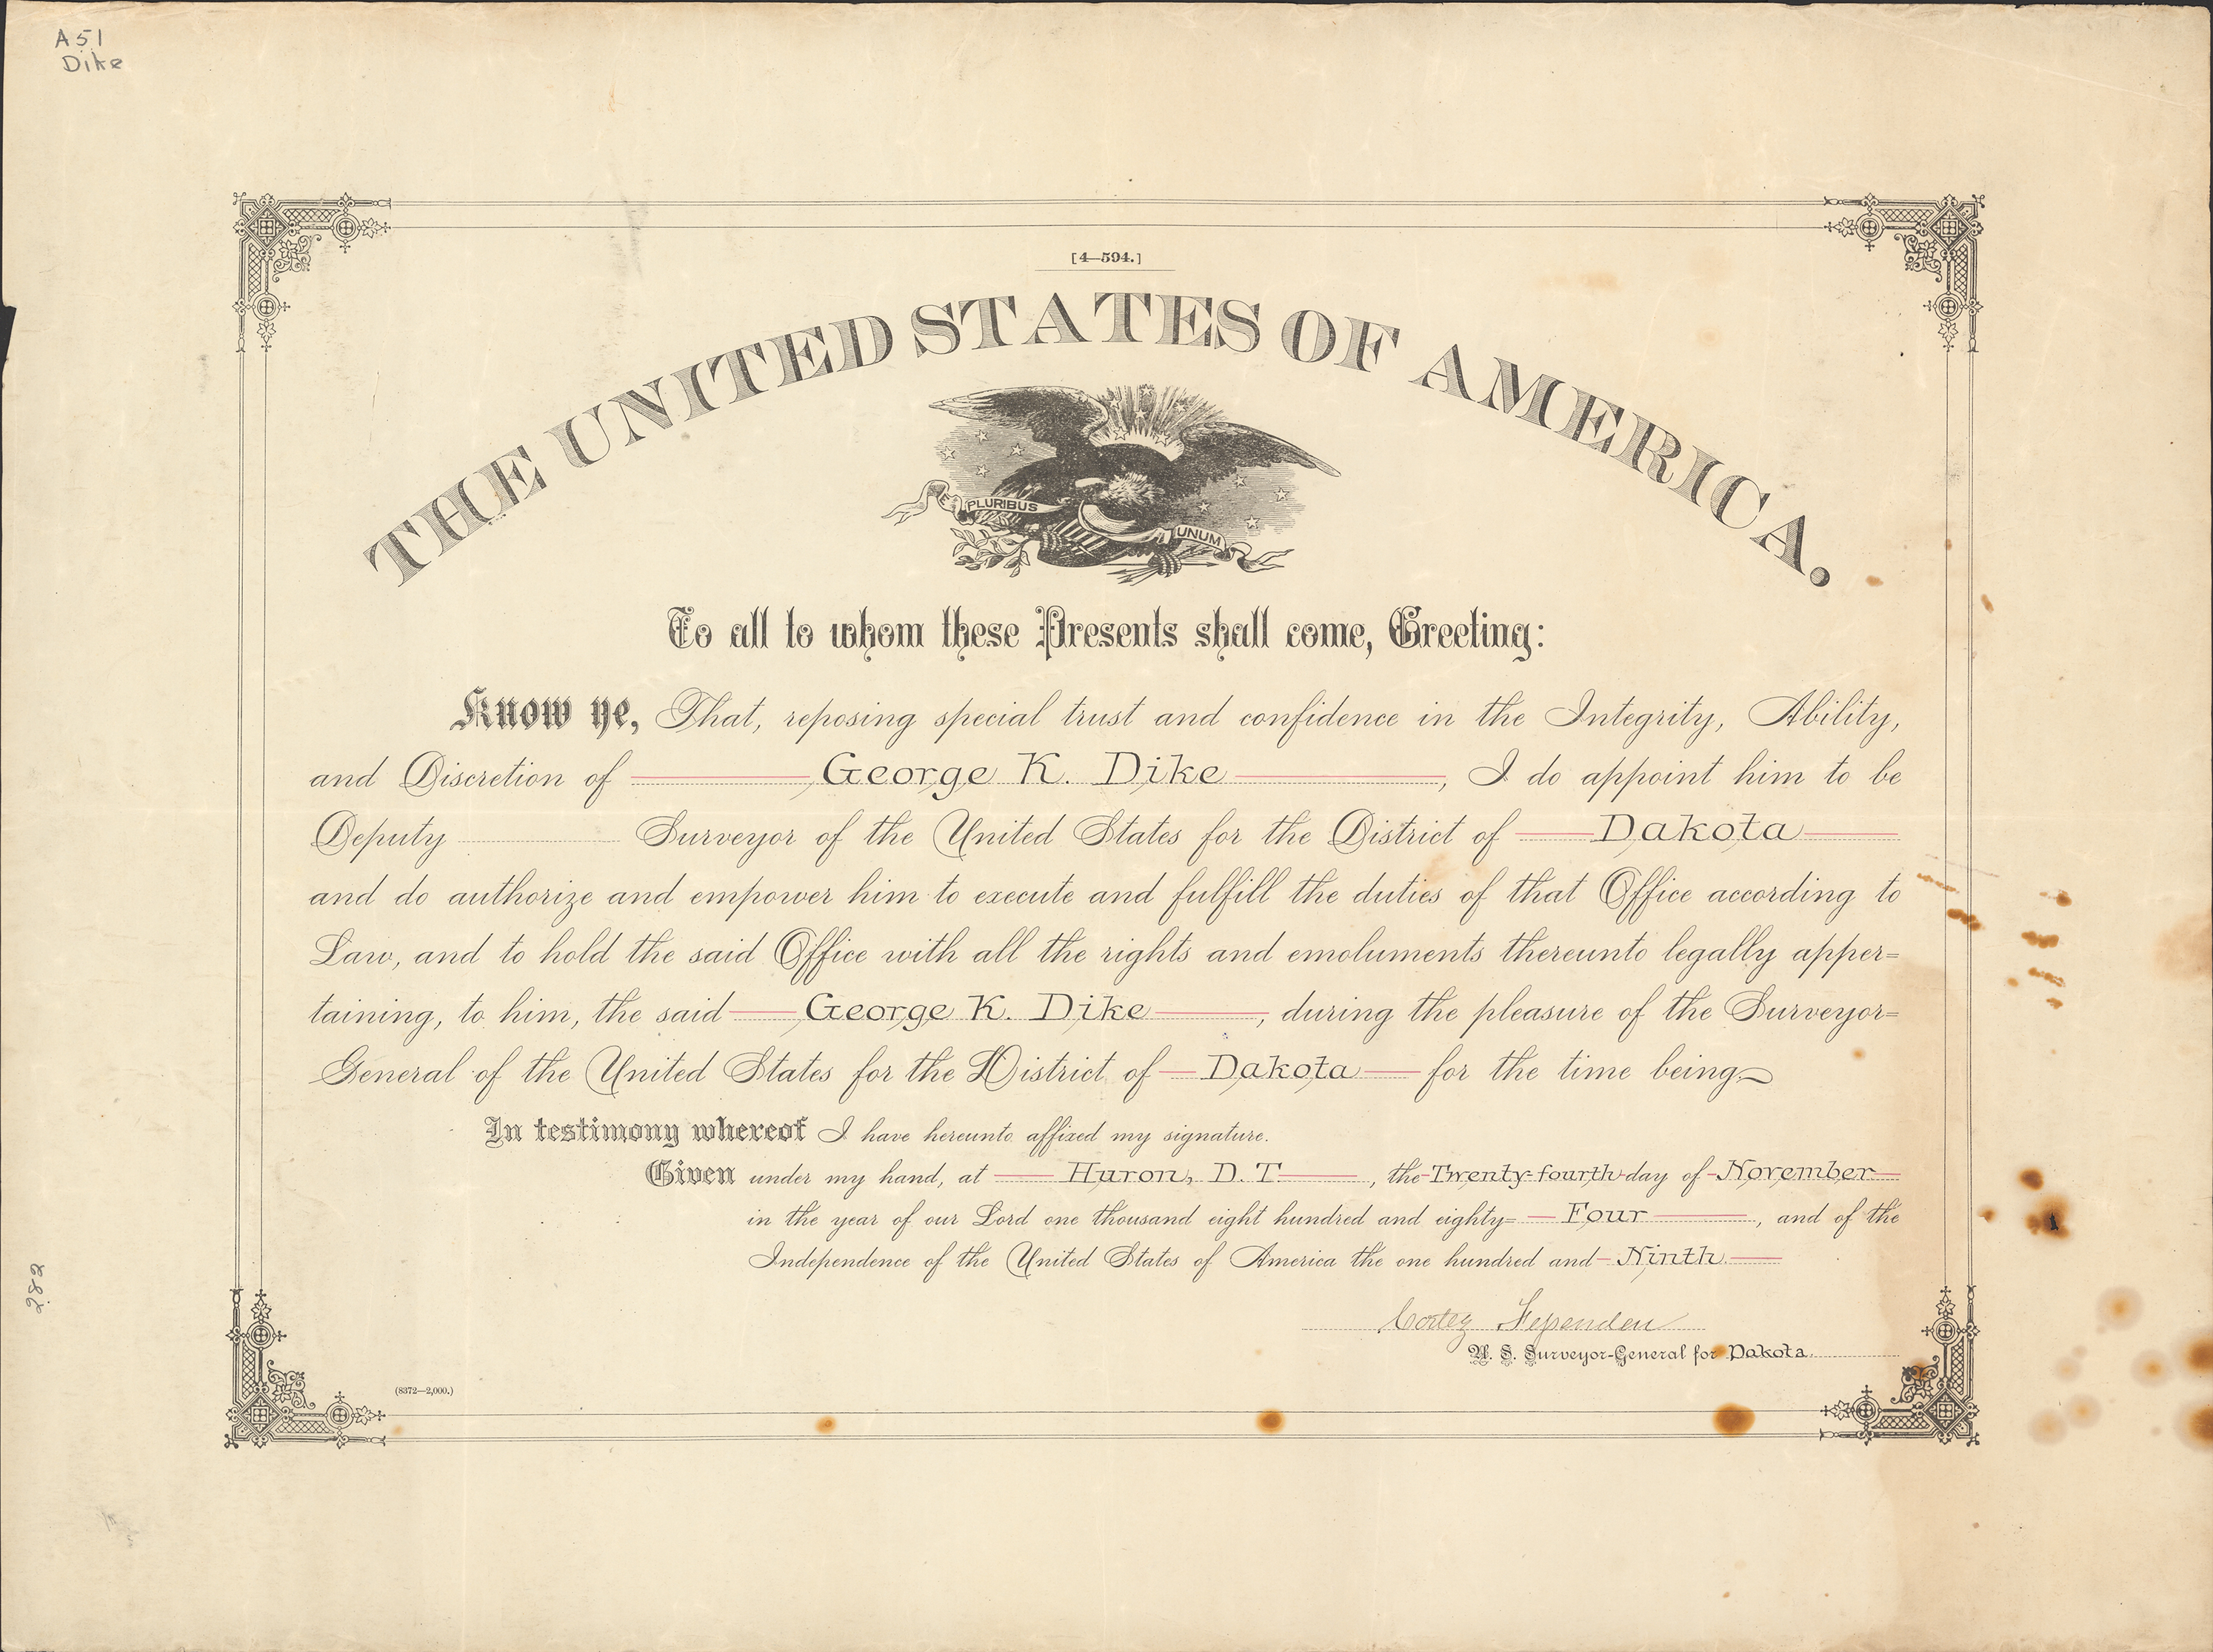 A51
Dike
[4—594.]
THE UNITED STATES OF AMERICA.
E PLURIBUS UNUM
To all to whom these Presents shall come, Greeting:
Know ye, That, reposing special trust and confidence in the Integrity, Ability,
and Discretion of George K. Dike, I do appoint him to be
Deputy Surveyor of the United States for the District of Dakota
and do authorize and empower him to execute and fulfill the duties of that Office according to
Law, and to hold the said Office with all the rights and emoluments thereunto legally apper=
taining, to him, the said George K. Dike, during the pleasure of the Surveyor=
General of the United States for the District of Dakota for the time being
In testimony whereof I have hereunto affixed my signature.
Given under my hand, at Huron, D. T., the Twenty-fourth day of November
in the year of our Lord one thousand eight hundred and eighty= Four, and of the
Independence of the United States of America the one hundred and Ninth.
Cortez Fessenden
U. S. Surveyor-General for Dakota.
(8372—2,000.)